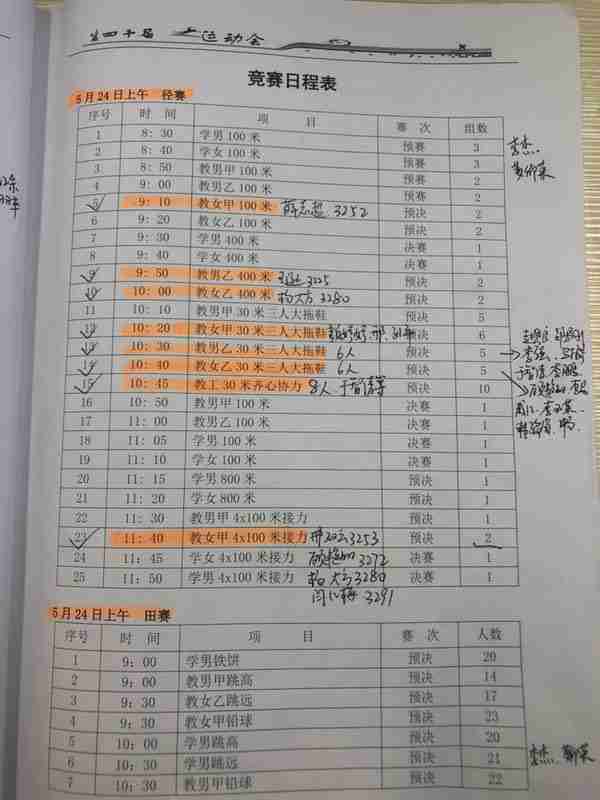 第四十届 运动会
竞赛日程表
5月24日上午 径赛
序号 时 间 项 目 赛 次 组数
1 8:30 学男100米 预赛 3
2 8:40 学女100米 预赛 3
3 8:50 教男甲100米 预赛 2
4 9:00 教男乙100米 预赛 2
5 9:10 教女甲100米 3252 预决 2
6 9:20 教女乙100米 预决 2
7 9:30 学男400米 决赛 1
8 9:40 学女400米 决赛 1
9 9:50 教男乙400米 3225 预决 2
10 10:00 教女乙400米 杨大方 3280 预决 2
11 10:10 教男甲30米三人大拖鞋 预决 5
12 10:20 教女甲30米三人大拖鞋 预决 6
13 10:30 教男乙30米三人大拖鞋 6人 预决 5
14 10:40 教女乙30米三人大拖鞋 6人 预决 5
15 10:45 教工30米齐心协力 8人 预决 10
16 10:50 教男甲100米 决赛 1
17 11:00 教男乙100米 决赛 1
18 11:05 学男100米 决赛 1
19 11:10 学女100米 决赛 1
20 11:15 学男800米 预决 1
21 11:20 学女800米 预决 1
22 11:30 教男甲4x100米接力 预决 1
23 11:40 教女甲4x100米接力 3253 预决 2
24 11:45 学女4x100米接力 3272 决赛 1
25 11:50 学男4x100米接力 3280 决赛 1
3291
5月24日上午 田赛
序号 时 间 项 目 赛 次 人数
1 9:00 学男铁饼 预决 20
2 9:00 教男甲跳高 预决 14
3 9:30 教女乙跳远 预决 17
4 9:30 教女甲铅球 预决 23
5 10:00 学男跳高 预决 20
6 10:30 学男跳远 预决 21
7 10:30 教男甲铅球 预决 22